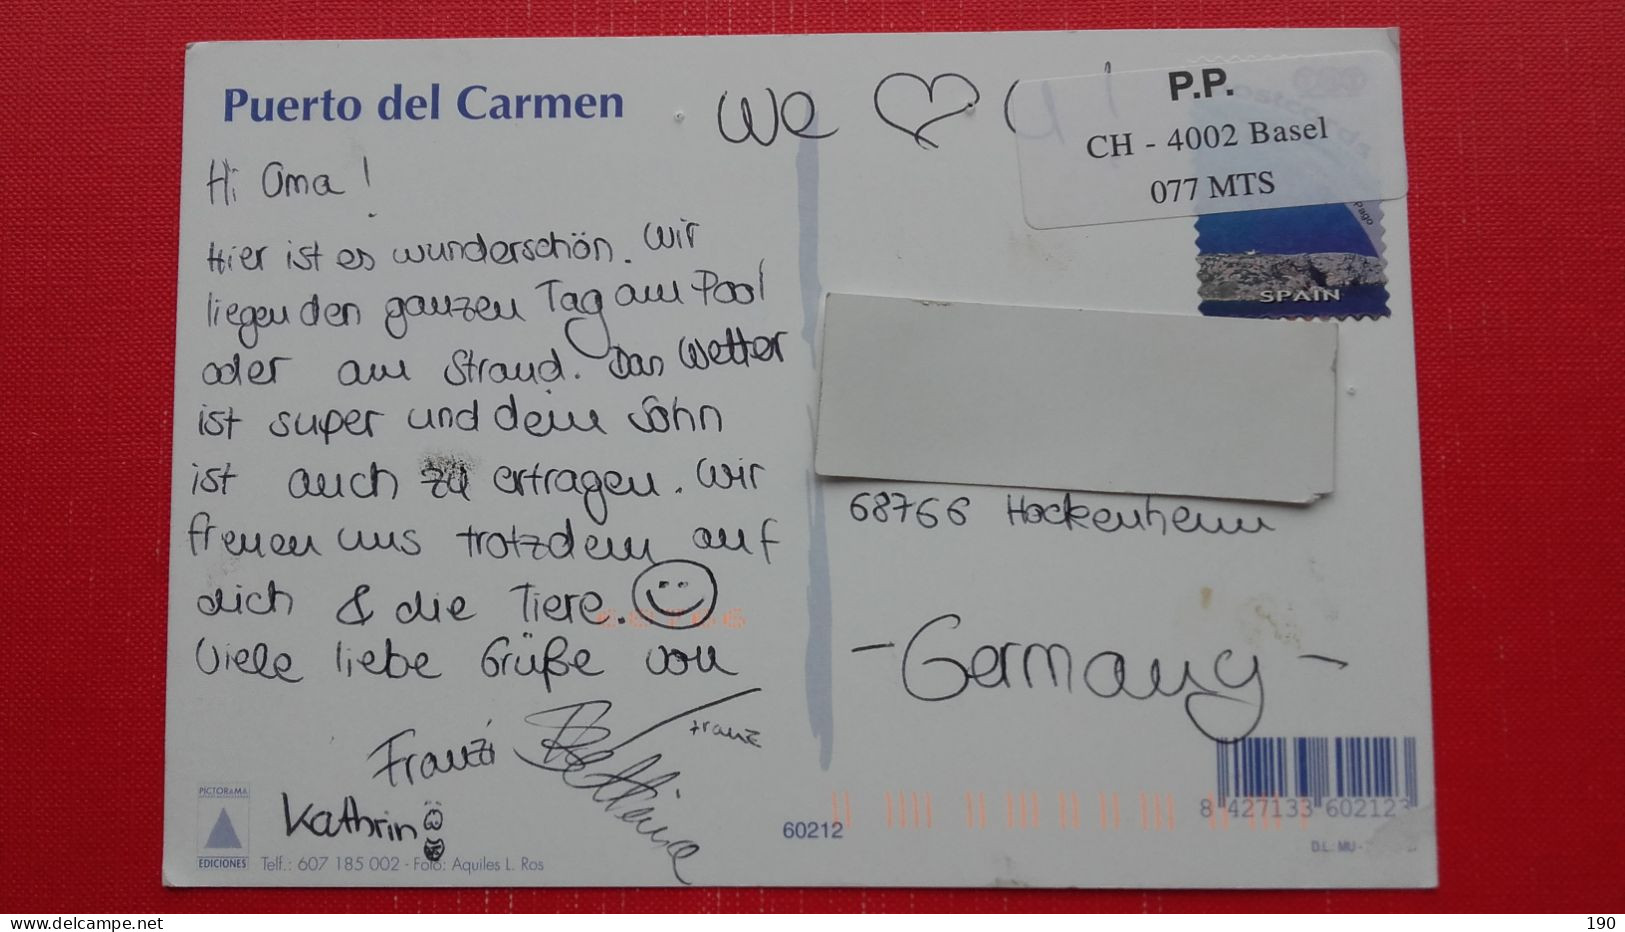 Puerto del Carmen
We ♡ U!
P.P.
CH - 4002 Basel
077 MTS
Pago
SPAIN
Hi Oma!
Hier ist es wunderschön. Wir
liegen den ganzen Tag am Pool
oder am Strand. Das Wetter
ist super und dein Sohn
ist auch zu ertragen. Wir
freuen uns trotzdem auf
dich & die Tiere. ☺
Viele liebe Grüße von
Franzi Bettina Franz
Kathrin
68766 Hockenheim
- Germany -
68766
PICTORAMA
EDICIONES
Telf.: 607 185 002 - Foto: Aquiles L. Ros
60212
8 427133 602123
D.L.: MU -
delcampe.net
190